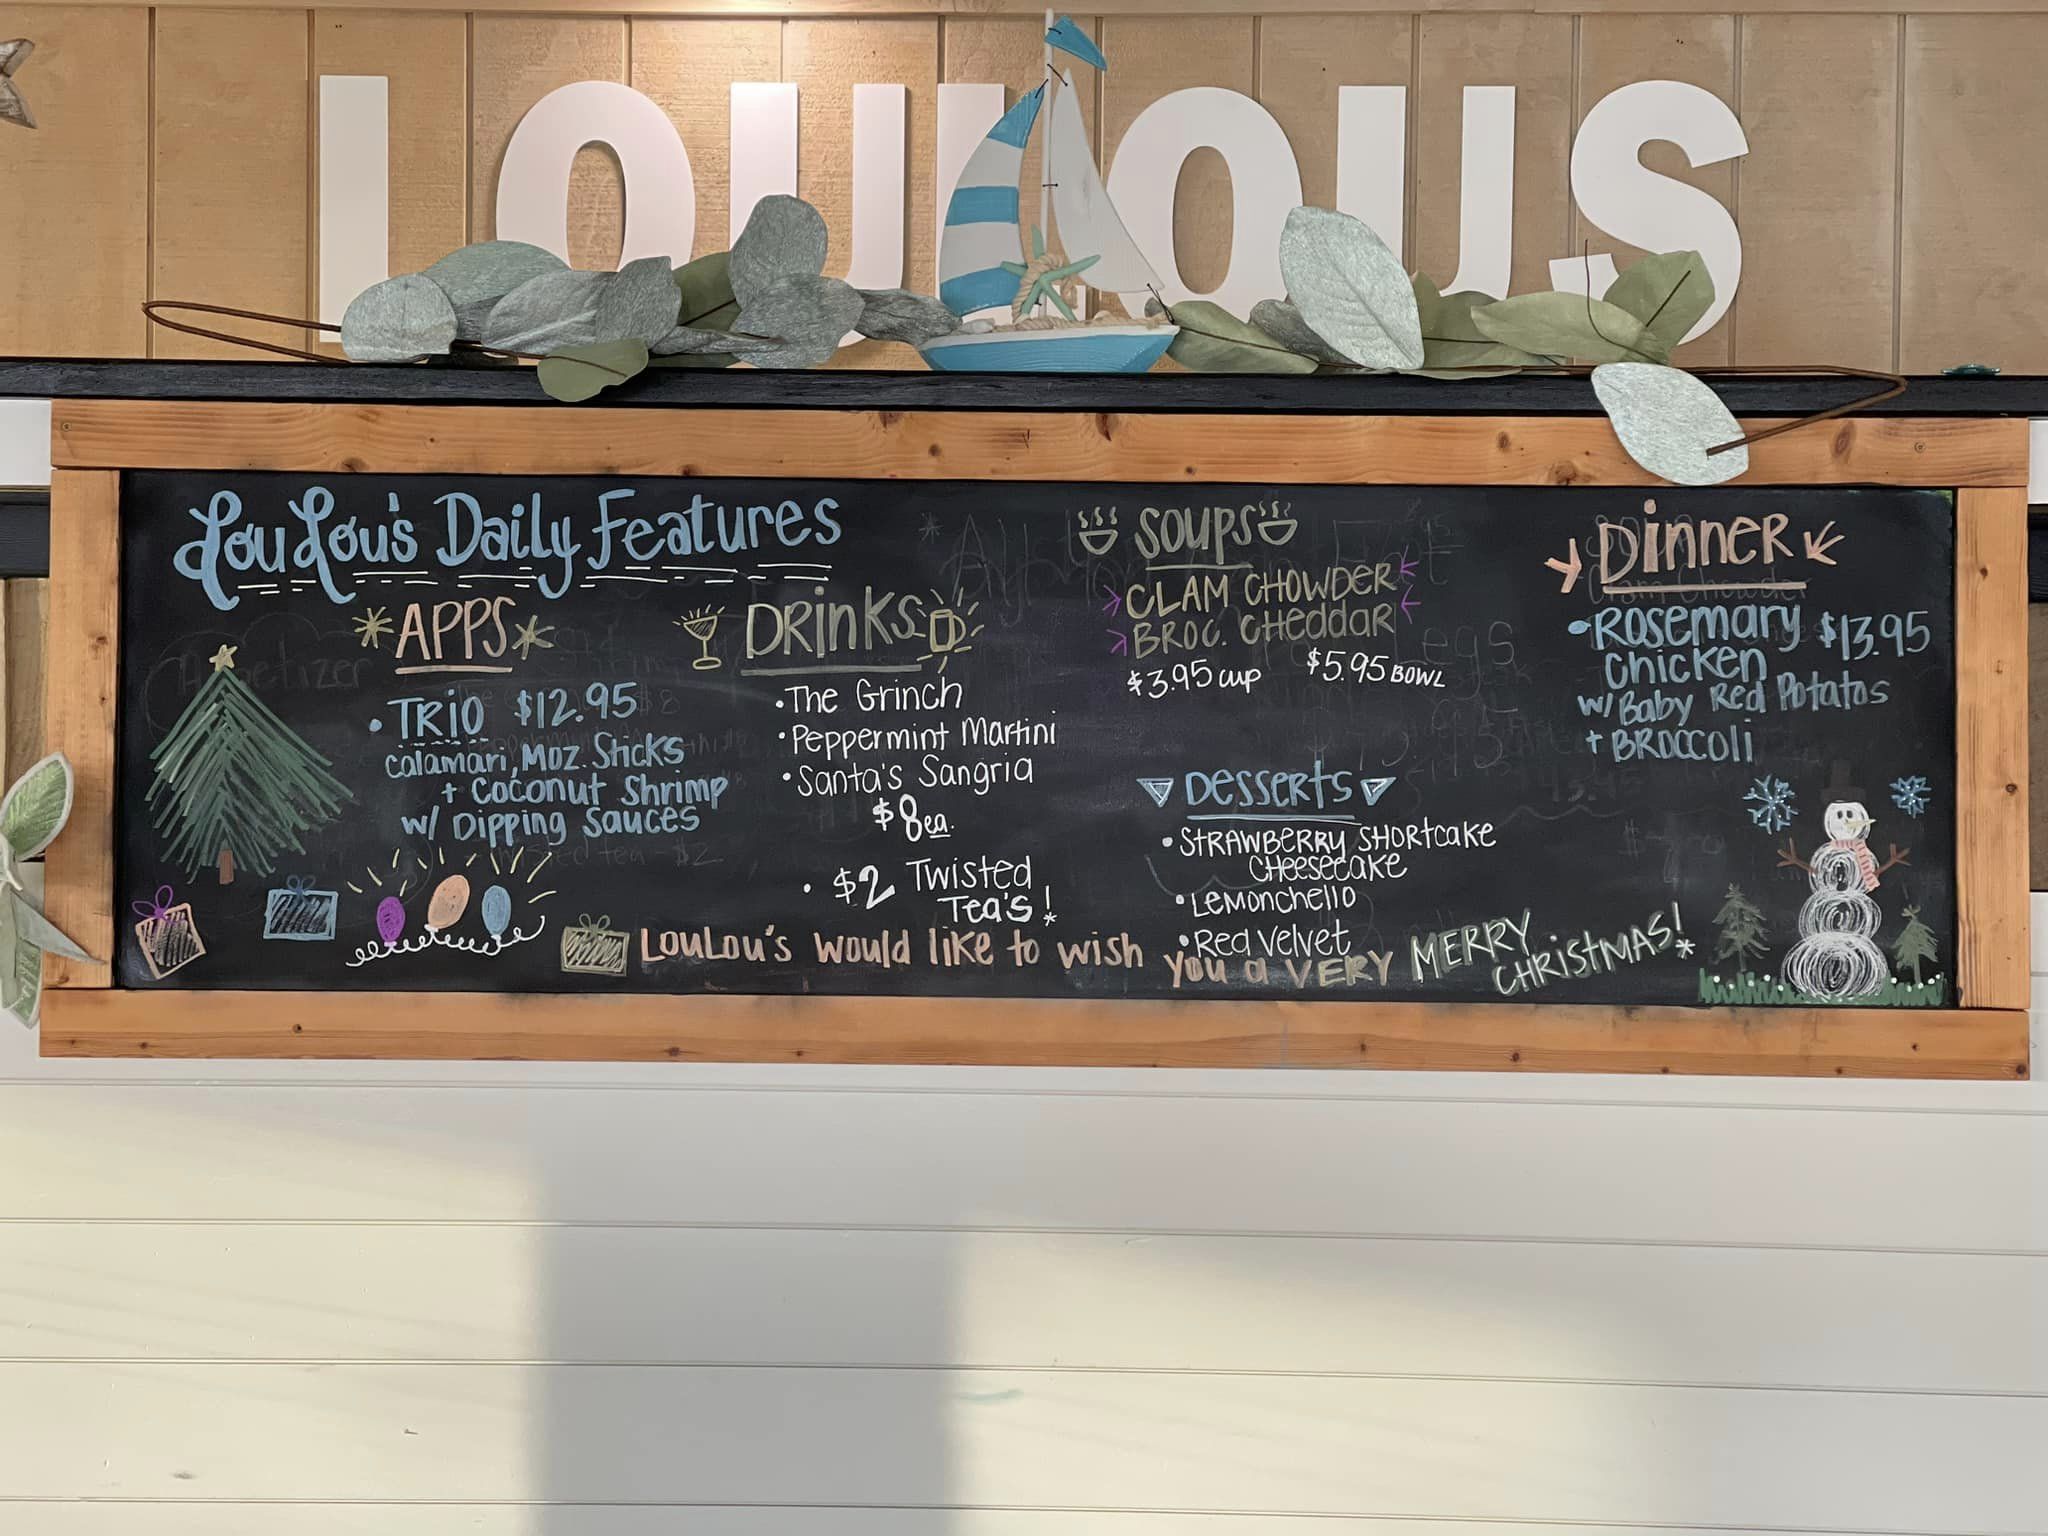 LOULOUS
LouLou's Daily Features
APPS
• TRIO $12.95
calamari, Moz. Sticks
+ Coconut Shrimp
w/ Dipping Sauces
DRINKS
• The Grinch
• Peppermint Martini
• Santa's Sangria
$8 ea.
• $2 Twisted
Tea's!
SOUPS
CLAM CHOWDER
BROC. CHEDDAR
$3.95 cup $5.95 BOWL
DESSERTS
• STRAWBERRY SHORTCAKE
CHEESECAKE
• LEMONCHELLO
• Red Velvet
Dinner
• Rosemary $13.95
Chicken
w/ Baby Red Potatos
+ BROCCOLI
LouLou's would like to wish you a VERY MERRY
CHRISTMAS!